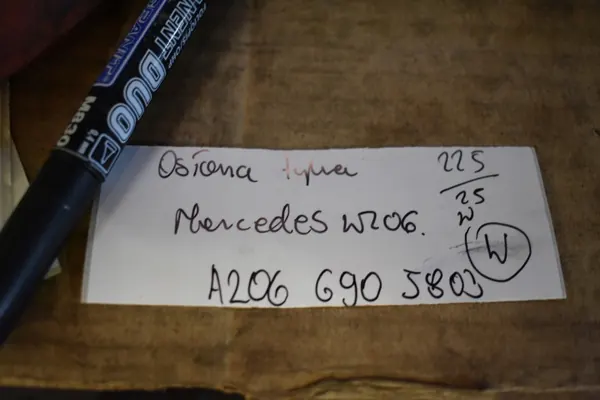 PERMANENT DUO
M&G
Osłona tylna
Mercedes W206.
A206 690 5803
225
25
W
W